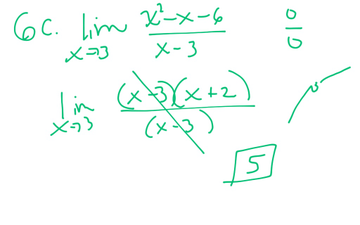 6c. lim x→3 (x² - x - 6)/(x - 3) 0/0
lim x→3 (x - 3)(x + 2)/(x - 3)
5